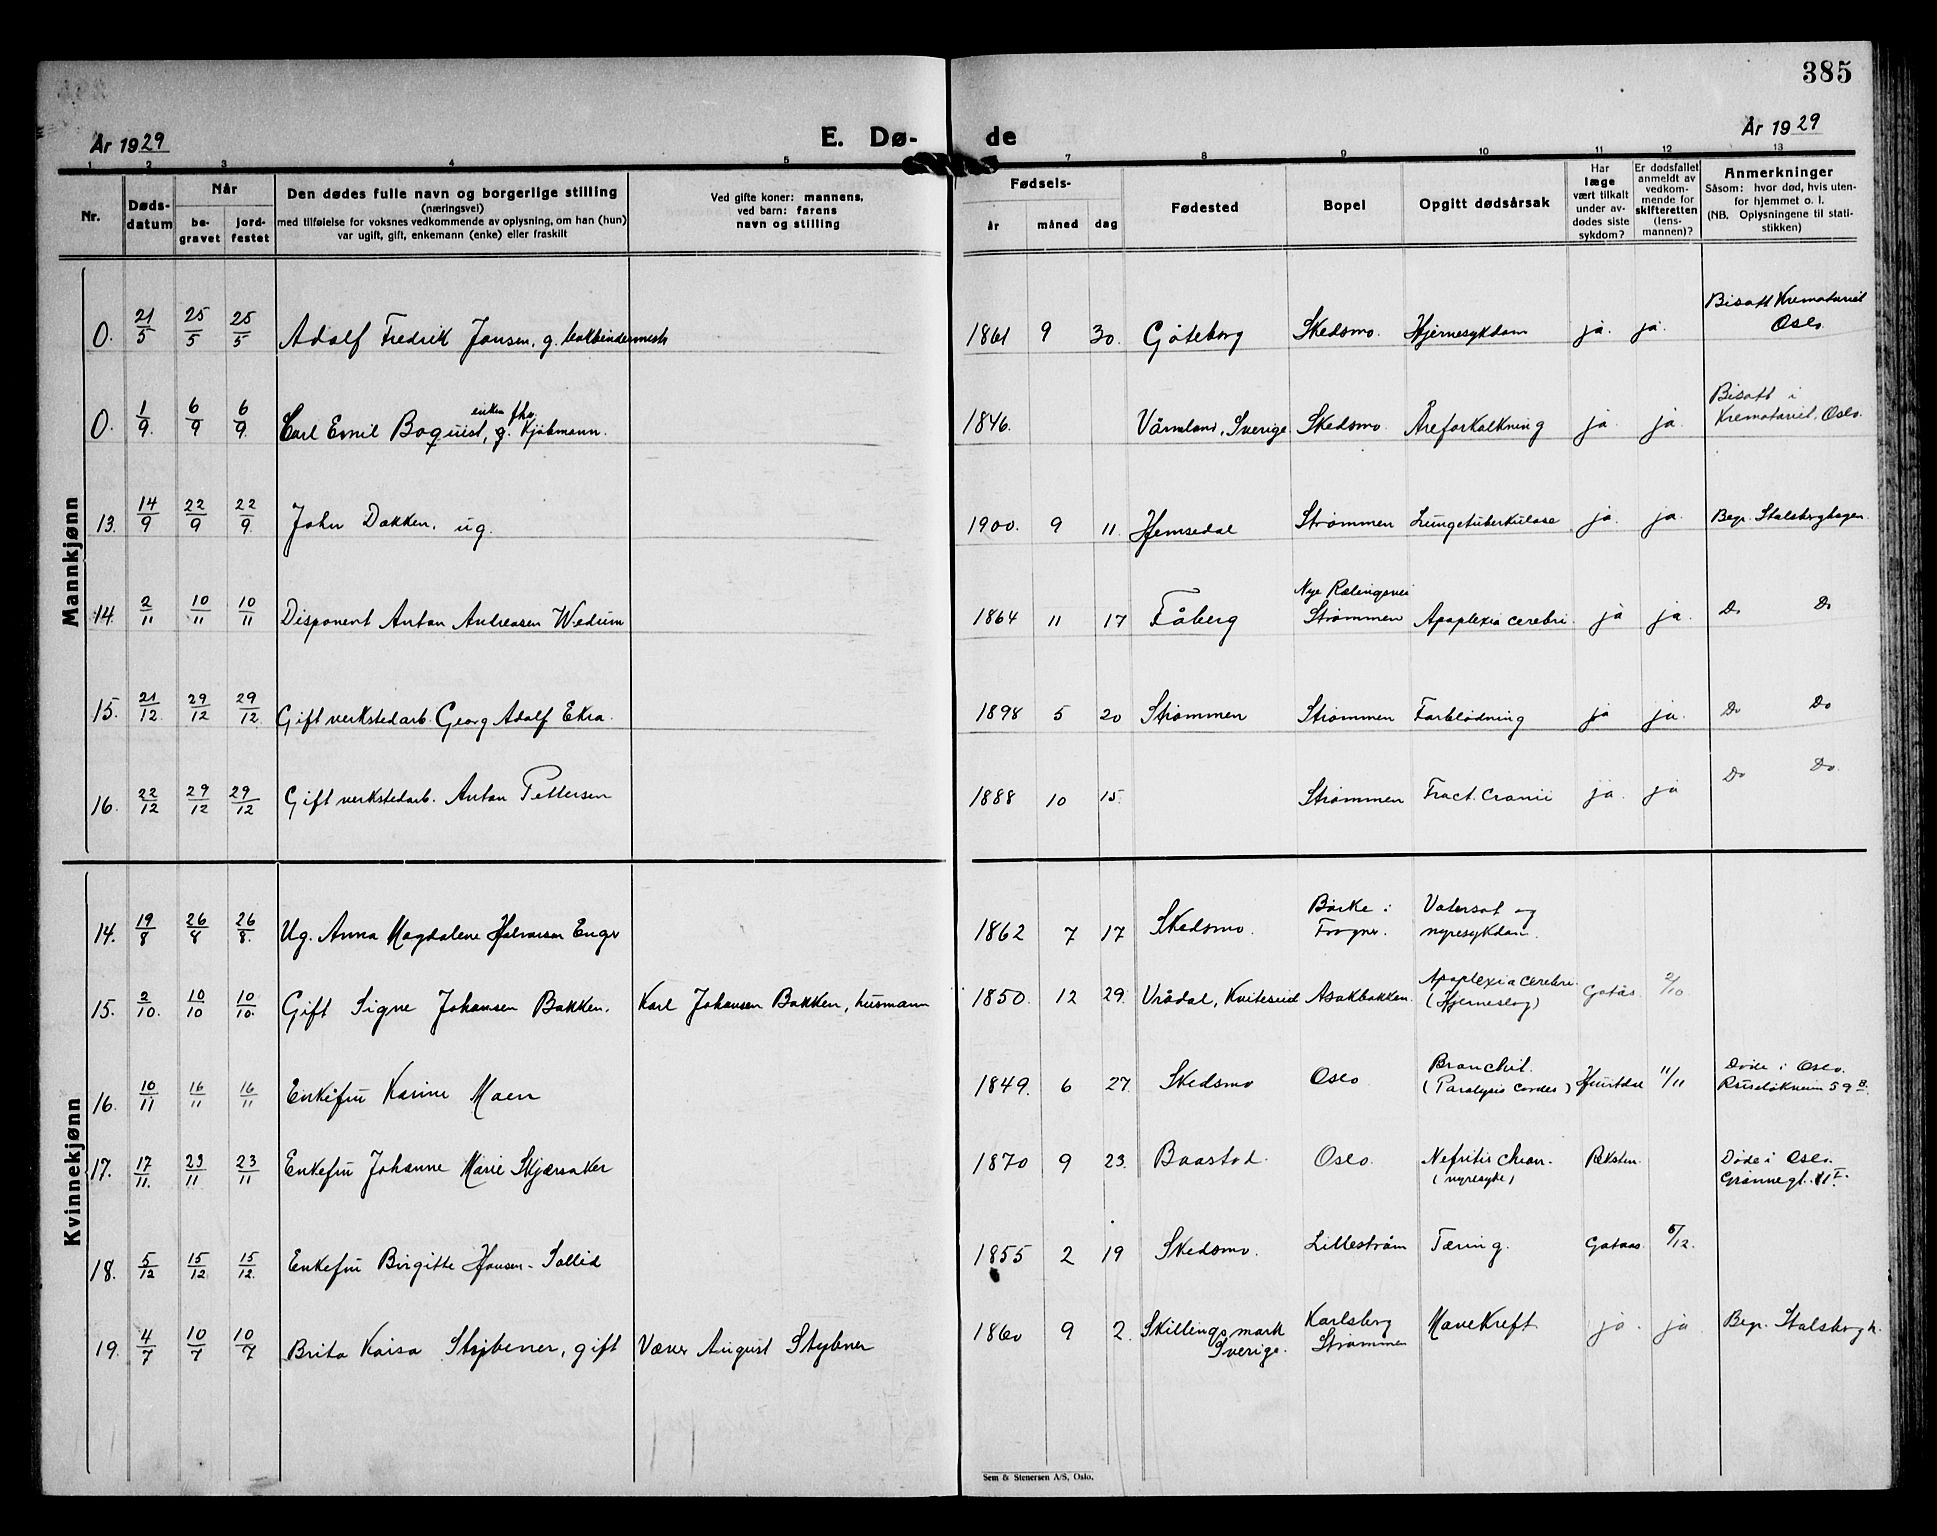 385
År 1929
E. Dø-
de
År 1929
1 2 3 4 5 7 8 9 10 11 12 13
Nr.
Døds-
datum
Når
be-
gravet
jord-
festet
Den dødes fulle navn og borgerlige stilling
(næringsvei)
med tilføielse for voksnes vedkommende av oplysning, om han (hun)
var ugift, gift, enkemann (enke) eller fraskilt
Ved gifte koner: mannens,
ved barn: farens
navn og stilling
Fødsels-
år måned dag
Fødested
Bopel
Opgitt dødsårsak
Har
læge
vært tilkalt
under av-
dødes siste
sykdom?
Er dødsfallet
anmeldt av
vedkom-
mende for
skifteretten
(lens-
mannen)?
Anmerkninger
Såsom: hvor død, hvis uten-
for hjemmet o. l.
(NB. Oplysningene til stati-
stikken)
Mannkjønn
0. 21/5 25/5 25/5 Adolf Fredrik Jansen, g. bokbindermestr 1861 9 30. Göteborg Skedsmo. Hjernesykdom ja. ja. Bisatt Krematoriet
Oslo
enkem. fhv.
0. 1/9. 6/9 6/9. Carl Emil Boquist, g. Kjøbmann. 1846. Värmland, Sverige. Skedsmo. Åreforkalkning ja ja. Bisatt i
Krematoriet, Oslo.
13. 14/9 22/9 22/9. John Dokken, ug. 1900. 9 11. Hemsedal Strømmen Lungetuberkulose ja. ja. Begr. Stalsberghagen.
14. 2/11 10/11 10/11 Disponent Anton Andreasen Wedum 1864 11 17 Fåberg Nye Rælingsvei
Strømmen Apoplexia cerebri. ja ja. Do Do
15. 21/12. 29/12 29/12. Gift verkstedarb. Georg Adolf Ekra. 1898 5 20 Strømmen Strømmen Forblødning ja ja. Do Do
16. 22/12 29/12 29/12 Gift verkstedarb. Anton Pettersen 1888 10 15. Strømmen Fract. cranii ja. ja Do Do.
Kvinnekjønn
14. 19/8 26/8 26/8. Ug. Anna Magdalene Halvorsen Enger 1862 7 17 Skedsmo. Børke i
Frogner. Vatersot og
nyresykdom.
15. 2/10. 10/10 10/10. Gift Signe Johansen Bakken. Karl Johansen Bakken, husmann 1850. 12 29. Vrådal, Kviteseid Asakbakken. Apoplexia cerebri.
(Hjerneslag) Gatås. 2/10
16. 10/11 16/11 16/11 Enkefru Karine Moen 1849. 6 27. Skedsmo Oslo Bronchit.
(Paralysis Cordes) Hjuertdal 11/11 Døde i Oslo.
59 B.
17. 17/11. 23/11 23/11 Enkefru Johanne Marie Skjærsaker 1870 9 23. Baastad. Oslo. Nefritis chron.
(nyresyke) Reksten. Døde i Oslo.
Grønnegt. 11 I.
18. 5/12 15/12 15/12. Enkefru Birgitte Hansen-Sollid 1855 2 19 Skedsmo. Lillestrøm Tæring. Gataas. 6/12.
19. 4/7 10/7 10/7 Brita Kaisa Stybener, gift Væver August Stybner 1860 9 2. Skillingsmark
Sverige. Karlsberg
Strømmen Mavekreft ja. ja Begr. Stalsbergh.
Sem & Stenersen A/S, Oslo.